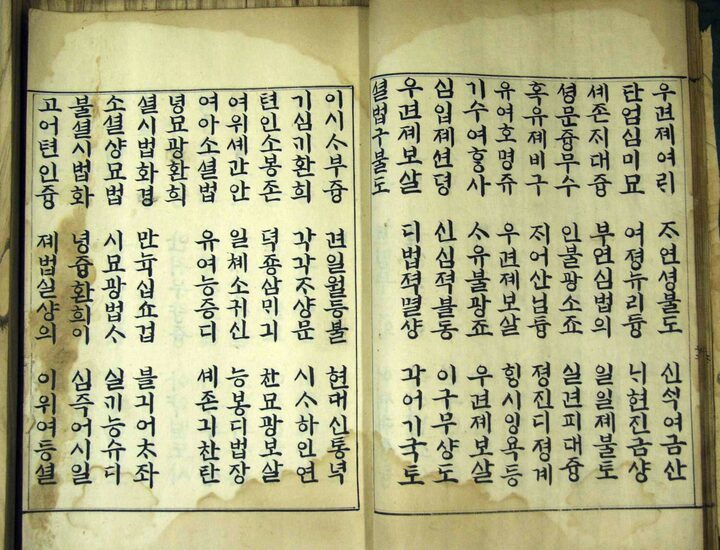 우견졔여ᄅᆡ ᄌᆞ연셩불도 신ᄉᆡᆨ여금산
단엄심미묘 여졍뉴리듕 ᄂᆡ현진금샹
셰존ᄌᆡ대즁 부연심법의 일일졔불토
셩문즁무수 인불광소쇼 실견피대즁
혹유졔비구 ᄌᆡ어산님즁 졍진디졍계
유여호명쥬 우견졔보살 힝시잉욕등
기수여홍사 ᄉᆞ유불광죠 우견졔보살
심입졔션뎡 신심젹불동 이구무샹도
우견졔보살 디법젹멸샹 각어기국토
셜법구불도
이시ᄉᆞ부즁 견일월등불 현대신통녁
기심ᄀᆡ환희 각각ᄌᆞ샹문 시ᄉᆞ하인연
텬인소봉존 뎍죵삼ᄆᆡ긔 찬묘광보살
여위셰간안 일쳬소귀신 능봉디법장
여아소셜법 유여능증디 셰존긔찬탄
녕묘광환희
셜시법화경 만뉵십쇼겁 불긔어太좌
소셜샹묘법 시묘광법ᄉᆞ 실ᄀᆡ능슈디
불셜시법화 녕즁환희이 심즉어시일
고어텬인즁 졔법실샹의 이위여등셜